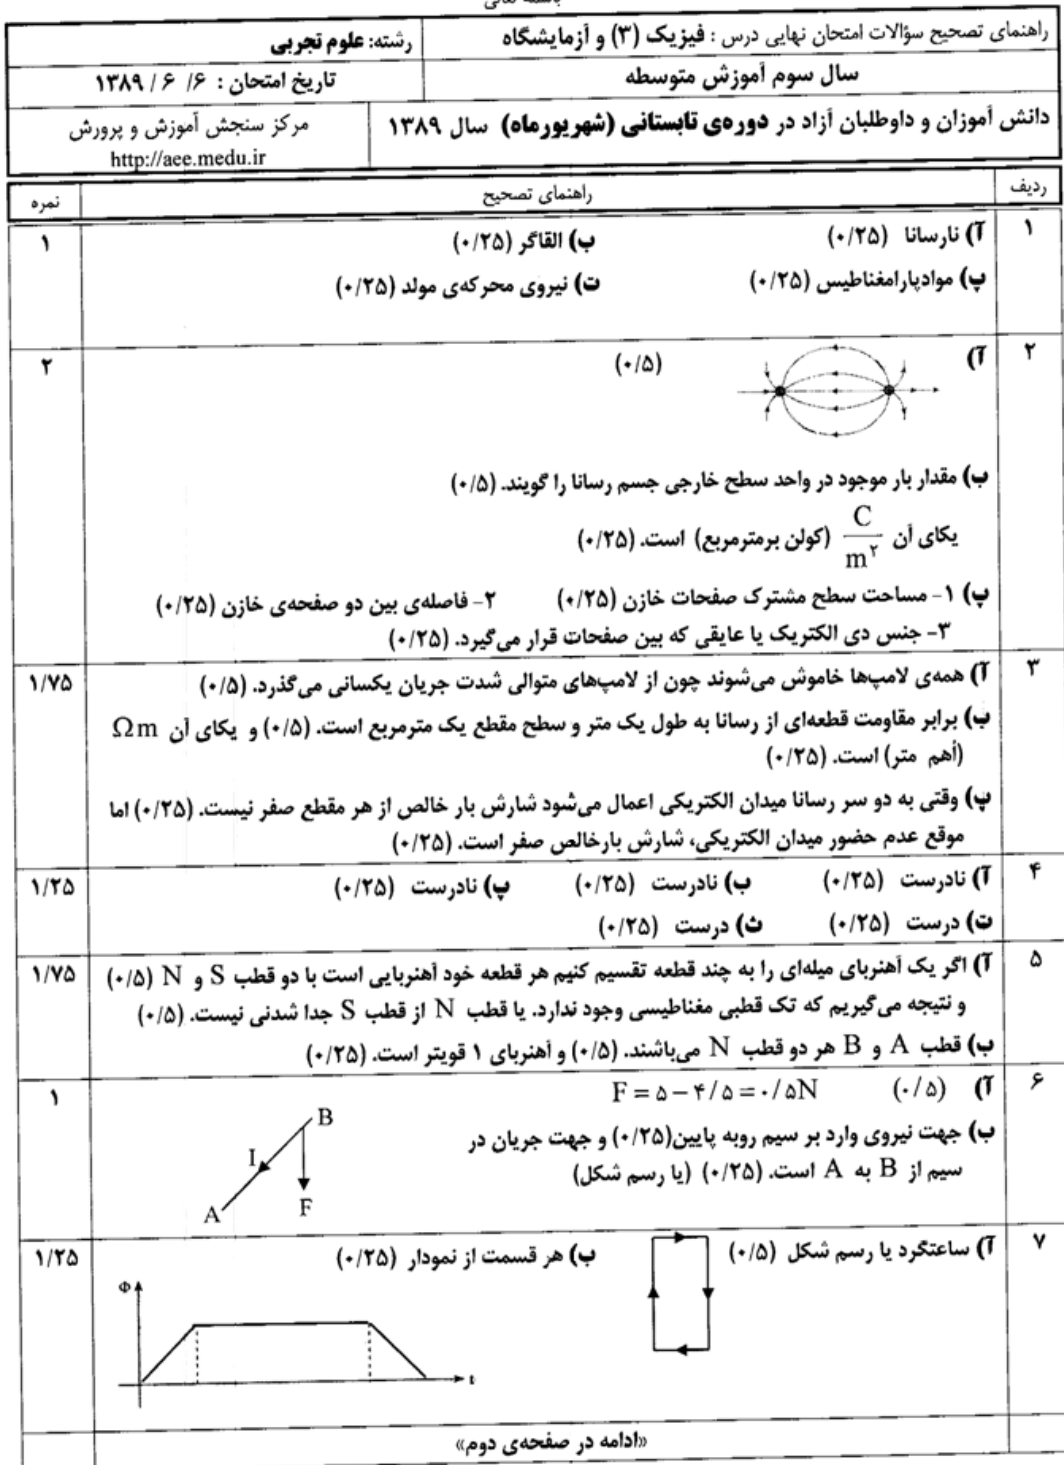 باسمه تعالی
راهنمای تصحیح سؤالات امتحان نهایی درس : فیزیک (۳) و آزمایشگاه
رشته: علوم تجربی
سال سوم آموزش متوسطه
تاریخ امتحان : ۶ / ۶ / ۱۳۸۹
دانش آموزان و داوطلبان آزاد در دوره‌ی تابستانی (شهریورماه) سال ۱۳۸۹
مرکز سنجش آموزش و پرورش
http://aee.medu.ir
ردیف
راهنمای تصحیح
نمره
۱
آ) نارسانا (۰/۲۵) ب) القاگر (۰/۲۵)
۱
پ) موادپارامغناطیس (۰/۲۵) ت) نیروی محرکه‌ی مولد (۰/۲۵)
۲
آ) (۰/۵)
۲
ب) مقدار بار موجود در واحد سطح خارجی جسم رسانا را گویند. (۰/۵)
یکای آن C/m^۲ (کولن برمترمربع) است. (۰/۲۵)
پ) ۱- مساحت سطح مشترک صفحات خازن (۰/۲۵) ۲- فاصله‌ی بین دو صفحه‌ی خازن (۰/۲۵)
۳- جنس دی الکتریک یا عایقی که بین صفحات قرار می‌گیرد. (۰/۲۵)
۳
آ) همه‌ی لامپ‌ها خاموش می‌شوند چون از لامپ‌های متوالی شدت جریان یکسانی می‌گذرد. (۰/۵)
۱/۷۵
ب) برابر مقاومت قطعه‌ای از رسانا به طول یک متر و سطح مقطع یک مترمربع است. (۰/۵) و یکای آن Ωm
(اُهم متر) است. (۰/۲۵)
پ) وقتی به دو سر رسانا میدان الکتریکی اعمال می‌شود شارش بار خالص از هر مقطع صفر نیست. (۰/۲۵) اما
موقع عدم حضور میدان الکتریکی، شارش بارخالص صفر است. (۰/۲۵)
۴
آ) نادرست (۰/۲۵) ب) نادرست (۰/۲۵) پ) نادرست (۰/۲۵)
۱/۲۵
ت) درست (۰/۲۵) ث) درست (۰/۲۵)
۵
آ) اگر یک آهنربای میله‌ای را به چند قطعه تقسیم کنیم هر قطعه خود آهنربایی است با دو قطب S و N (۰/۵)
۱/۷۵
و نتیجه می‌گیریم که تک قطبی مغناطیسی وجود ندارد. یا قطب N از قطب S جدا شدنی نیست. (۰/۵)
ب) قطب A و B هر دو قطب N می‌باشند. (۰/۵) و آهنربای ۱ قویتر است. (۰/۲۵)
۶
آ) (۰/۵) F = ۵ – ۴/۵ = ۰/۵N
۱
ب) جهت نیروی وارد بر سیم روبه پایین(۰/۲۵) و جهت جریان در
سیم از B به A است. (۰/۲۵) (یا رسم شکل)
B
I
A
F
۷
آ) ساعتگرد یا رسم شکل (۰/۵) ب) هر قسمت از نمودار (۰/۲۵)
۱/۲۵
Φ
t
«ادامه در صفحه‌ی دوم»